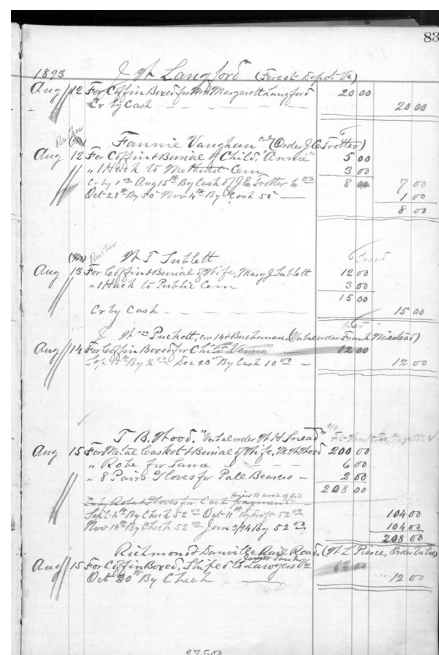 83
1893 J Wt Langford (Forest Depot Va)
Aug 12 For Coffin Boxed for Mrs Margarett Langford 20 00
Cr by Cash 20 00
Fannie Vaughan (Order J E Trotter)
Aug 12 For Coffin & Burial of Child "Annie" 5 00
" 1 Hack to Methodist Cem 3 00
Cr by Aug 15th By Cash of J E Trotter 6 00 8 7 00
Oct 28th By 50 Nov 4th By Cash 50 1 00
8 00
Wt T Sublett
Aug 13 For Coffin & Burial of Wife, Mary J Sublett 12 00
" 1 Hack to Public Cem 3 00
15 00
Cr by Cash 15 00
Puckett, cor 14th Buchanan
Aug 14 For Coffin Boxed for Child 12 00
Sep By 2 00 Dec 23rd By Cash 10 00 12 00
T. B. Wood. Verbal order Wt H Snead
Aug 15 For Metal Casket & Burial of Wife, 200 00
" Robe for Same 6 00
" 8 Pairs Gloves for Pall Bearers 2 00
208 00
Sept 4th By Check 52 00 Oct 11th By draft 52 00 104 00
Nov 14th By Check 52 00 Jan 2/94 By 52 00 104 00
208 00
Richmond & Danville Rail Road, (Wt L Pierce, Order
Aug 15 For Coffin Boxed, Ship'd to Lawyers Va 12 00
Oct 20th By Check 12 00
275 00